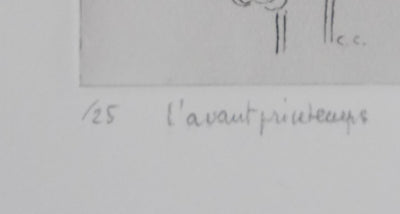 c.c.
/25 l'avant printemps